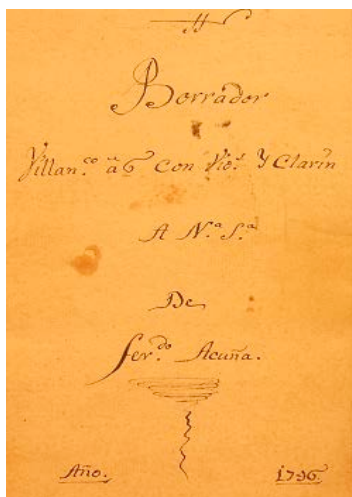 Borrador
Villan.co a 6 Con Vio.s Y Clarin
A N.a S.a
De
Fer.do Acuña.
Año. 1796.